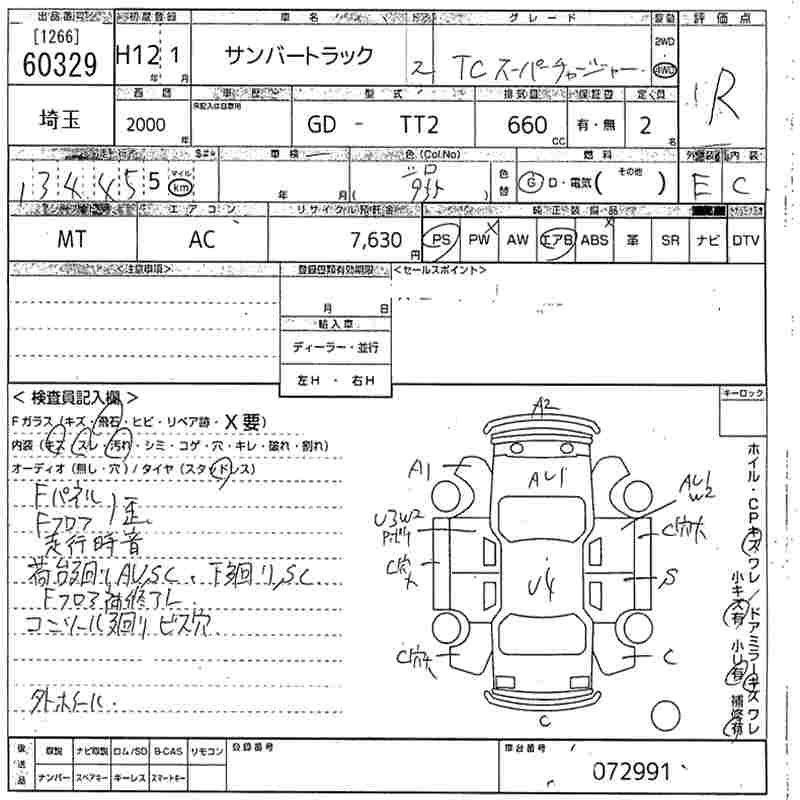 出品番号 初度登録 車名 ドア グレード 駆動 評価点
[1266]
60329 H12年 1月 サンバートラック 2 TC スーパーチャージャー 2WD・4WD R
西暦 車歴 型式 排気量 保証書 定員
埼玉 2000年 GD - TT2 660cc 有・無 2名
走行 車検 色(Col.No) 燃料 外装 内装
134,455 マイル km 年 月 シロ 色替 G D・電気( その他 ) E C
エアコン リサイクル預託金 純正装備品
MT AC 7,630円 PS PW AW エアB ABS 革 SR ナビ DTV
<注意事項> 登録書類有効期限 <セールスポイント>
月 日
輸入車
ディーラー・並行
左H ・ 右H
< 検査員記入欄 > キーロック
Fガラス (キズ・飛石・ヒビ・リペア跡・X要)
内装 (キズ・スレ・汚れ・シミ・コゲ・穴・キレ・破れ・割れ)
オーディオ (無し・穴) / タイヤ (スタッドレス)
Fパネル
Fフロア 歪
走行時音
荷台廻りAU,SC、下廻り,SC
Fフロア補修アト
コンソール廻りビス穴
外ホイール
A2
A1 AU1 AU1
W2
U3W2 C穴大
C穴大 U4 S
C穴大 C
C
ホイル・CPキズワレ/ドアミラーキズワレ
小キズ有 小U有 補修有
後送品 取説 ナビ取説 ロム/SD B-CAS リモコン 登録番号 車台番号
ナンバー スペアキー キーレス スマートキー 072991